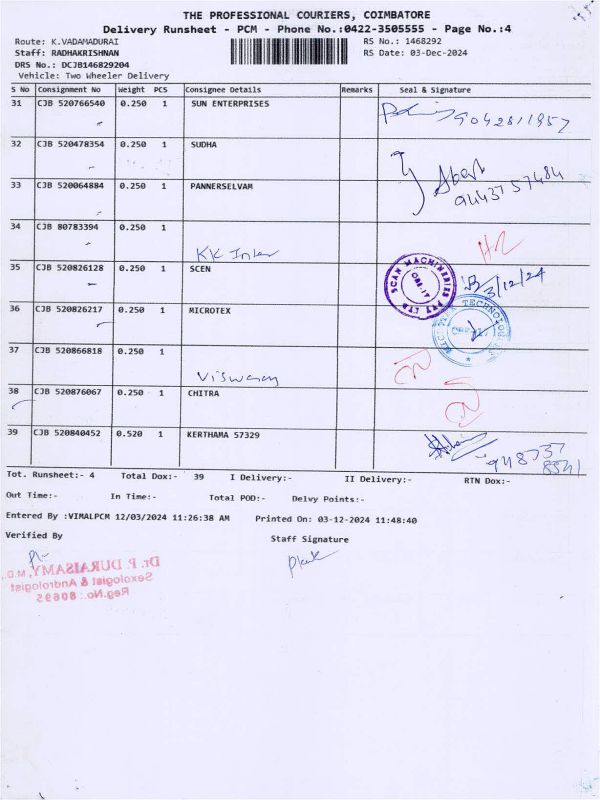 THE PROFESSIONAL COURIERS, COIMBATORE
Delivery Runsheet - PCM - Phone No.:0422-3505555 - Page No.:4
Route: K.VADAMADURAI RS No.: 1468292
Staff: RADHAKRISHNAN RS Date: 03-Dec-2024
DRS No.: DCJB146829204
Vehicle: Two Wheeler Delivery
S No Consignment No Weight PCS Consignee Details Remarks Seal & Signature
31 CJB 520766540 0.250 1 SUN ENTERPRISES
9042811957
32 CJB 520478354 0.250 1 SUDHA
33 CJB 520064884 0.250 1 PANNERSELVAM
9443757484
34 CJB 80783394 0.250 1
KK Inter
35 CJB 520826128 0.250 1 SCEN
SCAN MACHINERIES PVT LTD
CBE-17
3/12/24
36 CJB 520826217 0.250 1 MICROTEX
37 CJB 520866818 0.250 1
Viswaray
38 CJB 520876067 0.250 1 CHITRA
39 CJB 520840452 0.520 1 KERTHAMA 57329
Tot. Runsheet:- 4 Total Dox:- 39 I Delivery:- II Delivery:- RTN Dox:-
Out Time:- In Time:- Total POD:- Delvy Points:-
Entered By :VIMALPCM 12/03/2024 11:26:38 AM Printed On: 03-12-2024 11:48:40
Verified By Staff Signature
Dr. P. DURAISAMY, M.D.,
Sexologist & Andrologist
Reg.No.: 80695